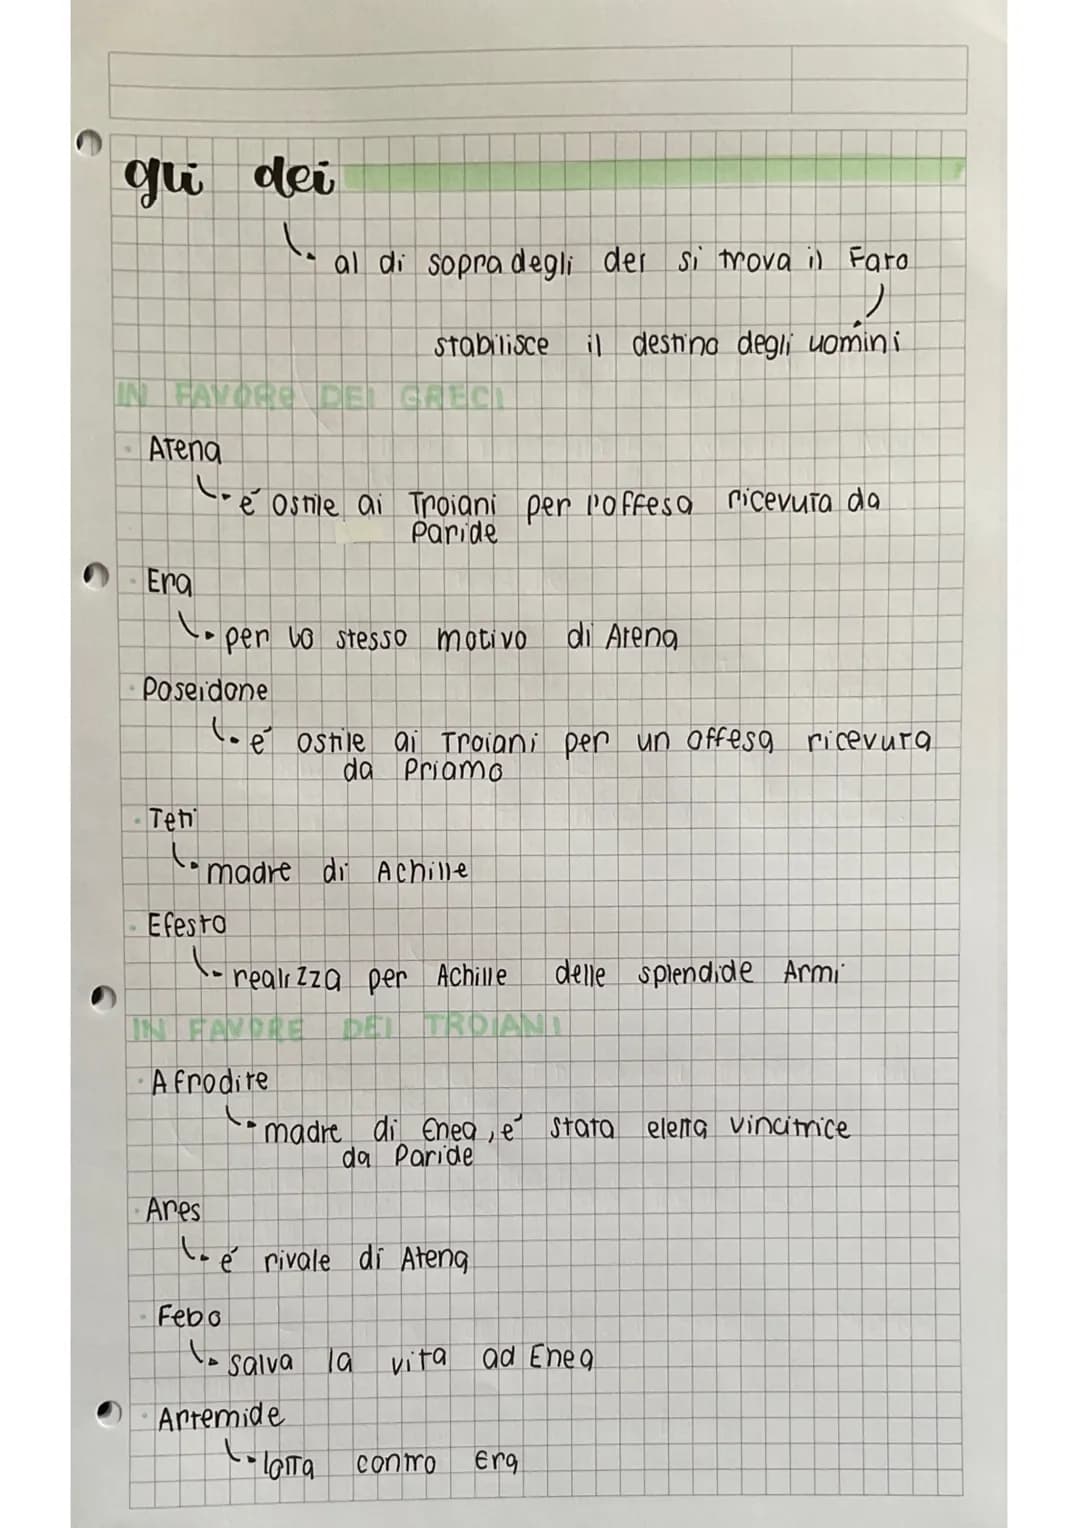 gli dei
al di sopra degli dei si trova il Fato
stabilisce il destino degli uomini
IN FAVORe DEI GRECI
Atena
é ostile ai Troiani per l'offesa ricevuta da
Paride
Era
per lo stesso motivo di Atena
Poseidone
é ostile ai Troiani per un offesa ricevuta
da Priamo
Teti
madre di Achille
Efesto
realizza per Achille delle splendide Armi
IN FAVORE DEI TROIANI
Afrodite
madre di Enea, é stata eletta vincitrice
da Paride
Ares
é rivale di Atena
Febo
salva la vita ad Enea
Artemide
lotta contro Era